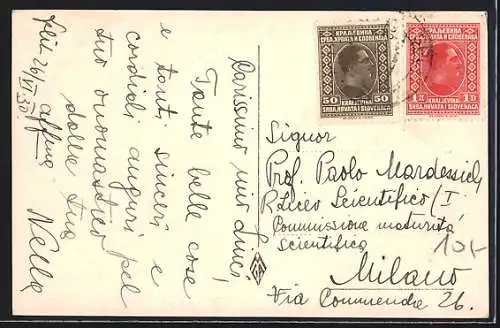 Carissimo mio
Tante belle cose
e tanti sinceri e
cordiali auguri pel
tuo onomastico
dalla tua
Nella
26/VI 30.
КРАЉЕВИНА
СРБА, ХРВАТА И СЛОВЕНАЦА
50 50
KRALJEVINA
SRBA, HRVATA I SLOVENACA
КРАЉЕВИНА
СРБА, ХРВАТА И СЛОВЕНАЦА
1 1
KRALJEVINA
SRBA, HRVATA I SLOVENACA
Signor
Prof. Paolo Mardessich
R. Liceo Scientifico /I
Commissione maturità
scientifica
Milano
Via Commenda 26.
10,-